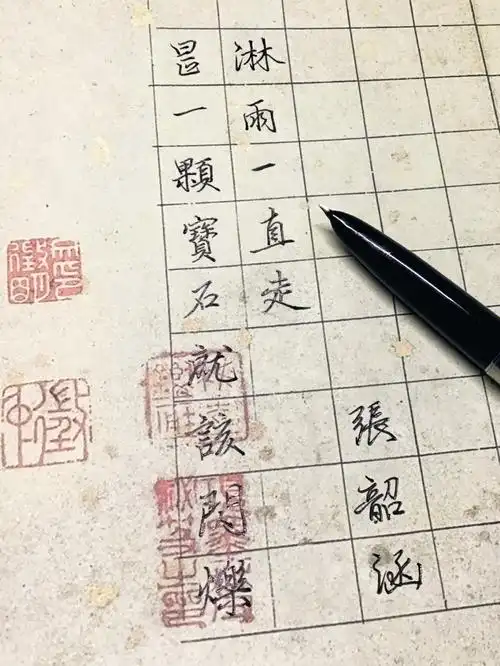 張韶涵
淋雨一直走
是一顆寶石就該閃爍